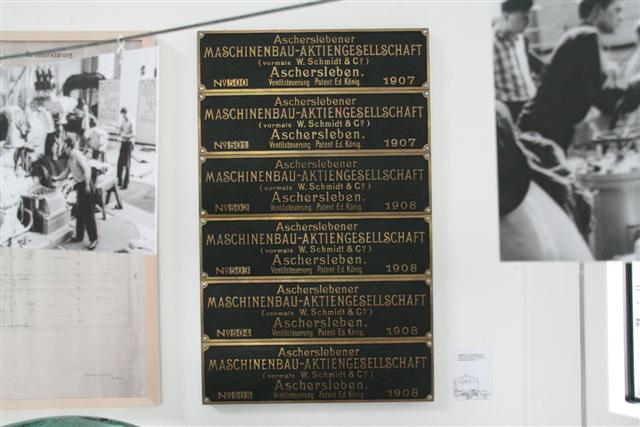 Ascherslebener
MASCHINENBAU-AKTIENGESELLSCHAFT
(vormals W. Schmidt & Co)
Aschersleben.
No 500 Ventilsteuerung Patent Ed. König. 1907
Ascherslebener
MASCHINENBAU-AKTIENGESELLSCHAFT
(vormals W. Schmidt & Co)
Aschersleben.
No 501 Ventilsteuerung Patent Ed. König. 1907
Ascherslebener
MASCHINENBAU-AKTIENGESELLSCHAFT
(vormals W. Schmidt & Co)
Aschersleben.
No 502 Ventilsteuerung Patent Ed. König. 1908
Ascherslebener
MASCHINENBAU-AKTIENGESELLSCHAFT
(vormals W. Schmidt & Co)
Aschersleben.
No 503 Ventilsteuerung Patent Ed. König. 1908
Ascherslebener
MASCHINENBAU-AKTIENGESELLSCHAFT
(vormals W. Schmidt & Co)
Aschersleben.
No 504 Ventilsteuerung Patent Ed. König. 1908
Ascherslebener
MASCHINENBAU-AKTIENGESELLSCHAFT
(vormals W. Schmidt & Co)
Aschersleben.
No 505 Ventilsteuerung Patent Ed. König. 1908